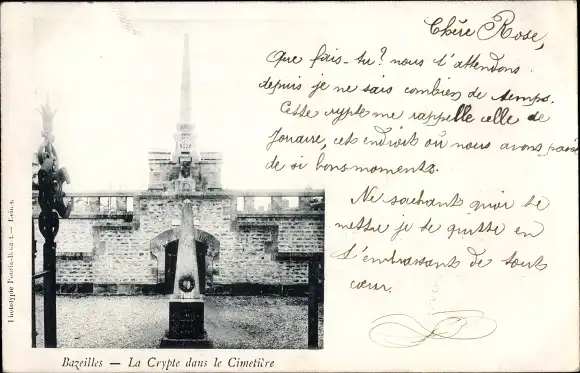 Chère Rose,
Que fais-tu? nous t'attendons
depuis je ne sais combien de temps.
Cette crypte me rappelle celle de
Jouarre, cet endroit où nous avons passé
de si bons moments.
Ne sachant quoi te
mettre je te quitte en
t'embrassant de tout
cœur.
Bazeilles — La Crypte dans le Cimetière
Phototypie